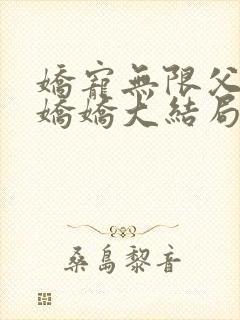 嬌寵無限父
嬌嬌大結局
桑島黎音